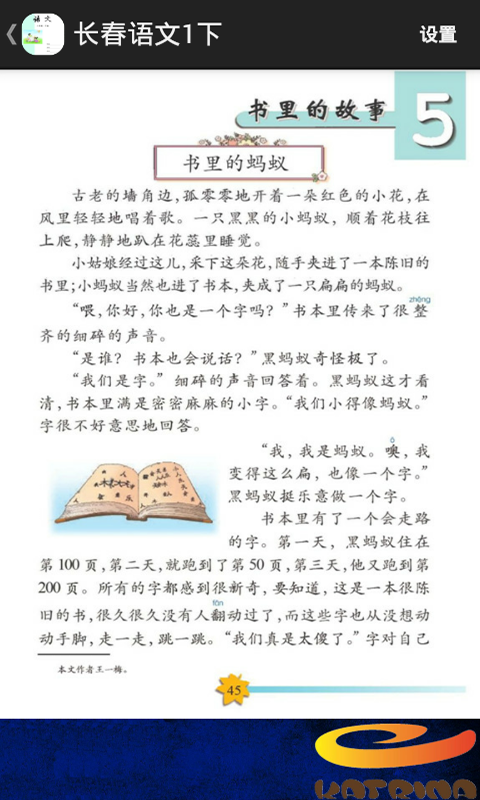 长春语文1下
设置
语文
书里的故事
5
书里的蚂蚁
古老的墙角边,孤零零地开着一朵红色的小花,在
风里轻轻地唱着歌。一只黑黑的小蚂蚁,顺着花枝往
上爬,静静地趴在花蕊里睡觉。
小姑娘经过这儿,采下这朵花,随手夹进了一本陈旧的
书里;小蚂蚁当然也进了书本,夹成了一只扁扁的蚂蚁。
zhěng
“喂,你好,你也是一个字吗?”书本里传来了很整
齐的细碎的声音。
“是谁?书本也会说话?”黑蚂蚁奇怪极了。
“我们是字。”细碎的声音回答着。黑蚂蚁这才看
清,书本里满是密密麻麻的小字。“我们小得像蚂蚁。”
字很不好意思地回答。
ō
“我,我是蚂蚁。噢,我
变得这么扁,也像一个字。”
黑蚂蚁挺乐意做一个字。
书本里有了一个会走路
的字。第一天,黑蚂蚁住在
第100页,第二天,就跑到了第50页,第三天,他又跑到第
200页。所有的字都感到很新奇,要知道,这是一本很陈
fān
旧的书,很久很久没有人翻动过了,而这些字也从没想动
动手脚,走一走,跳一跳。“我们真是太傻了。”字对自己
本文作者王一梅。
45
KATRINA